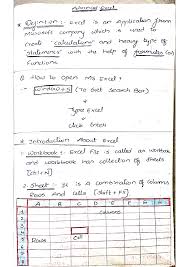 Advanced Excel
* Definition:- Excel is an Application from
Microsoft company which is used to
create 'calculations' and heavy type of
'statements' with the help of formulas (or)
functions.
* How to open Ms Excel :
Windows+S (To Get Search Box)
Type Excel
click Excel
* Introduction About Excel
1. Workbook : Excel File is called as workbook
and workbook has collection of sheets
[Ctrl+N]
2. Sheet : It is A combination of columns
Rows And cells [Shift+F11]
A B C D E F G H
1
2 Columns
3
4
5 Rows Cell